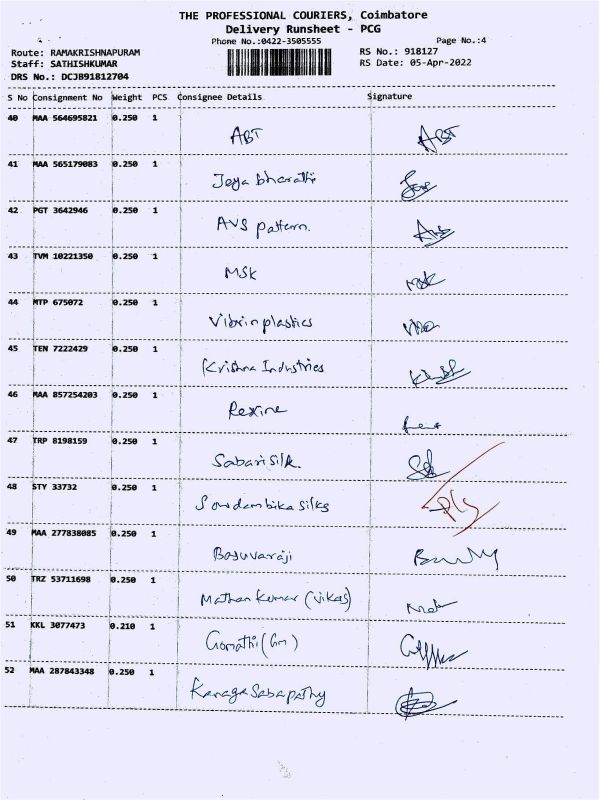 THE PROFESSIONAL COURIERS, Coimbatore
Delivery Runsheet - PCG
Phone No.:0422-3505555 Page No.:4
Route: RAMAKRISHNAPURAM RS No.: 918127
Staff: SATHISHKUMAR RS Date: 05-Apr-2022
DRS No.: DCJB91812704
S No Consignment No Weight PCS Consignee Details Signature
40 MAA 564695821 0.250 1 ABT ABT
41 MAA 565179083 0.250 1 Jeya bharathi
42 PGT 3642946 0.250 1 AVS pattern.
43 TVM 10221350 0.250 1 MSK
44 MTP 675072 0.250 1 Vibrin plastics
45 TEN 7222429 0.250 1 Krishna Industries
46 MAA 857254203 0.250 1 Rexine
47 TRP 8198159 0.250 1 Sabari silk.
48 STY 33732 0.250 1 Sowdambika silks
49 MAA 277838085 0.250 1 Basuvaraji
50 TRZ 53711698 0.250 1 Mathan kumar (vikas)
51 KKL 3077473 0.210 1 Gomathi (Gm)
52 MAA 287843348 0.250 1 Kanaga Sabapathy